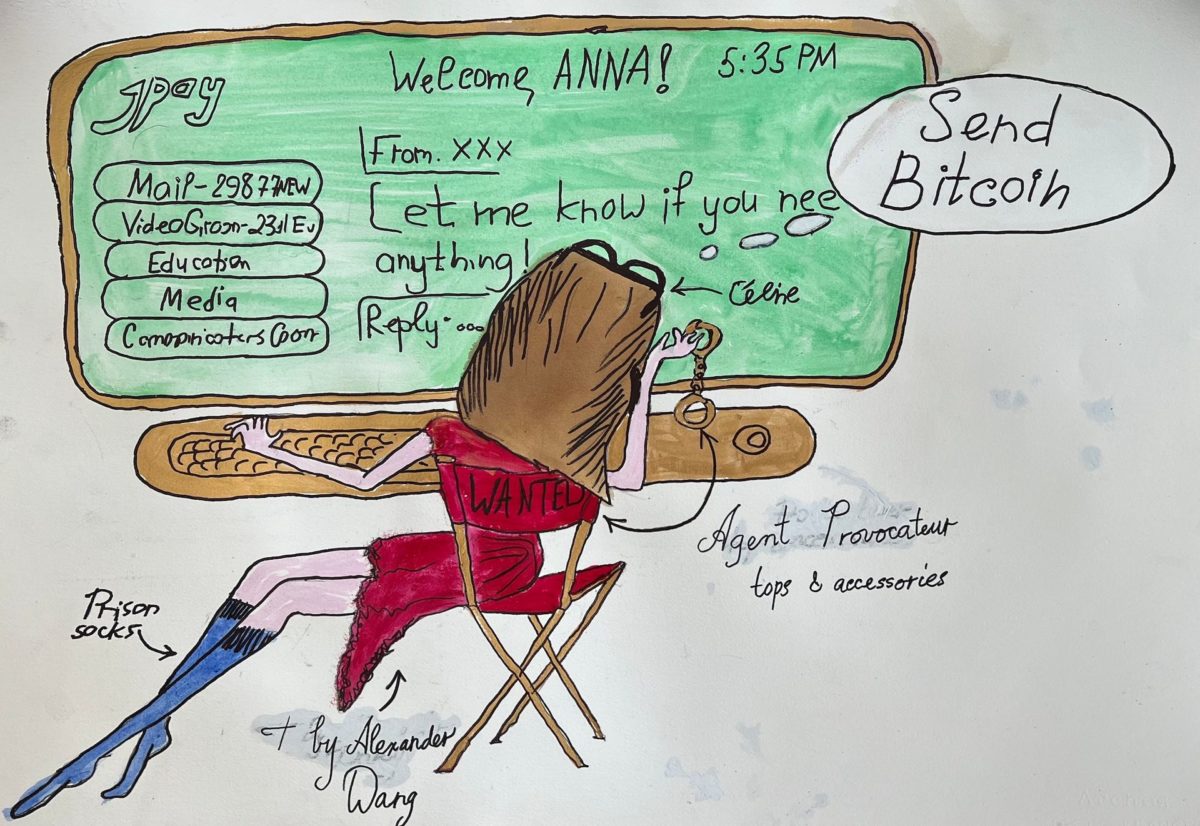 Jpay
Welcome, ANNA! 5:35 PM
From. XXX
Let me know if you nee
anything!
Reply...
Mail-29877NEW
Education
Media
Send
Bitcoin
Céline
WANTED
Agent Provocateur
tops & accessories
Prison
socks
T by Alexander
Wang